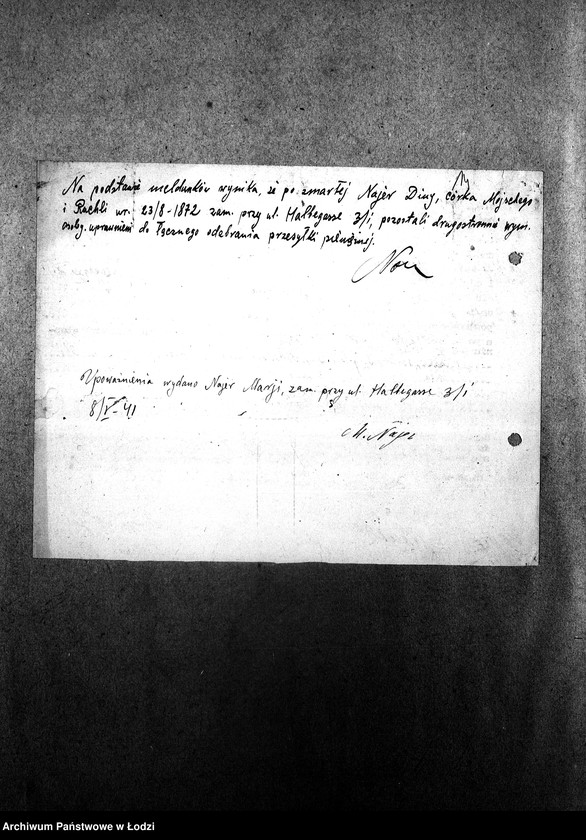 Na podstawie meldunków wynika, że po zmarłej Najer Diny, córka Mojschego
i Ruchli ur. 23/8-1872 zam. przy ul. Halbegasse 3/i, pozostali drugostronnie wym.
osoby uprawnieni do łącznego odebrania przesyłki pieniężnej.
Upoważnienia wydano Najer Marji, zam. przy ul. Halbegasse 3/i
8/V-41
M. Najer
Archiwum Państwowe w Łodzi